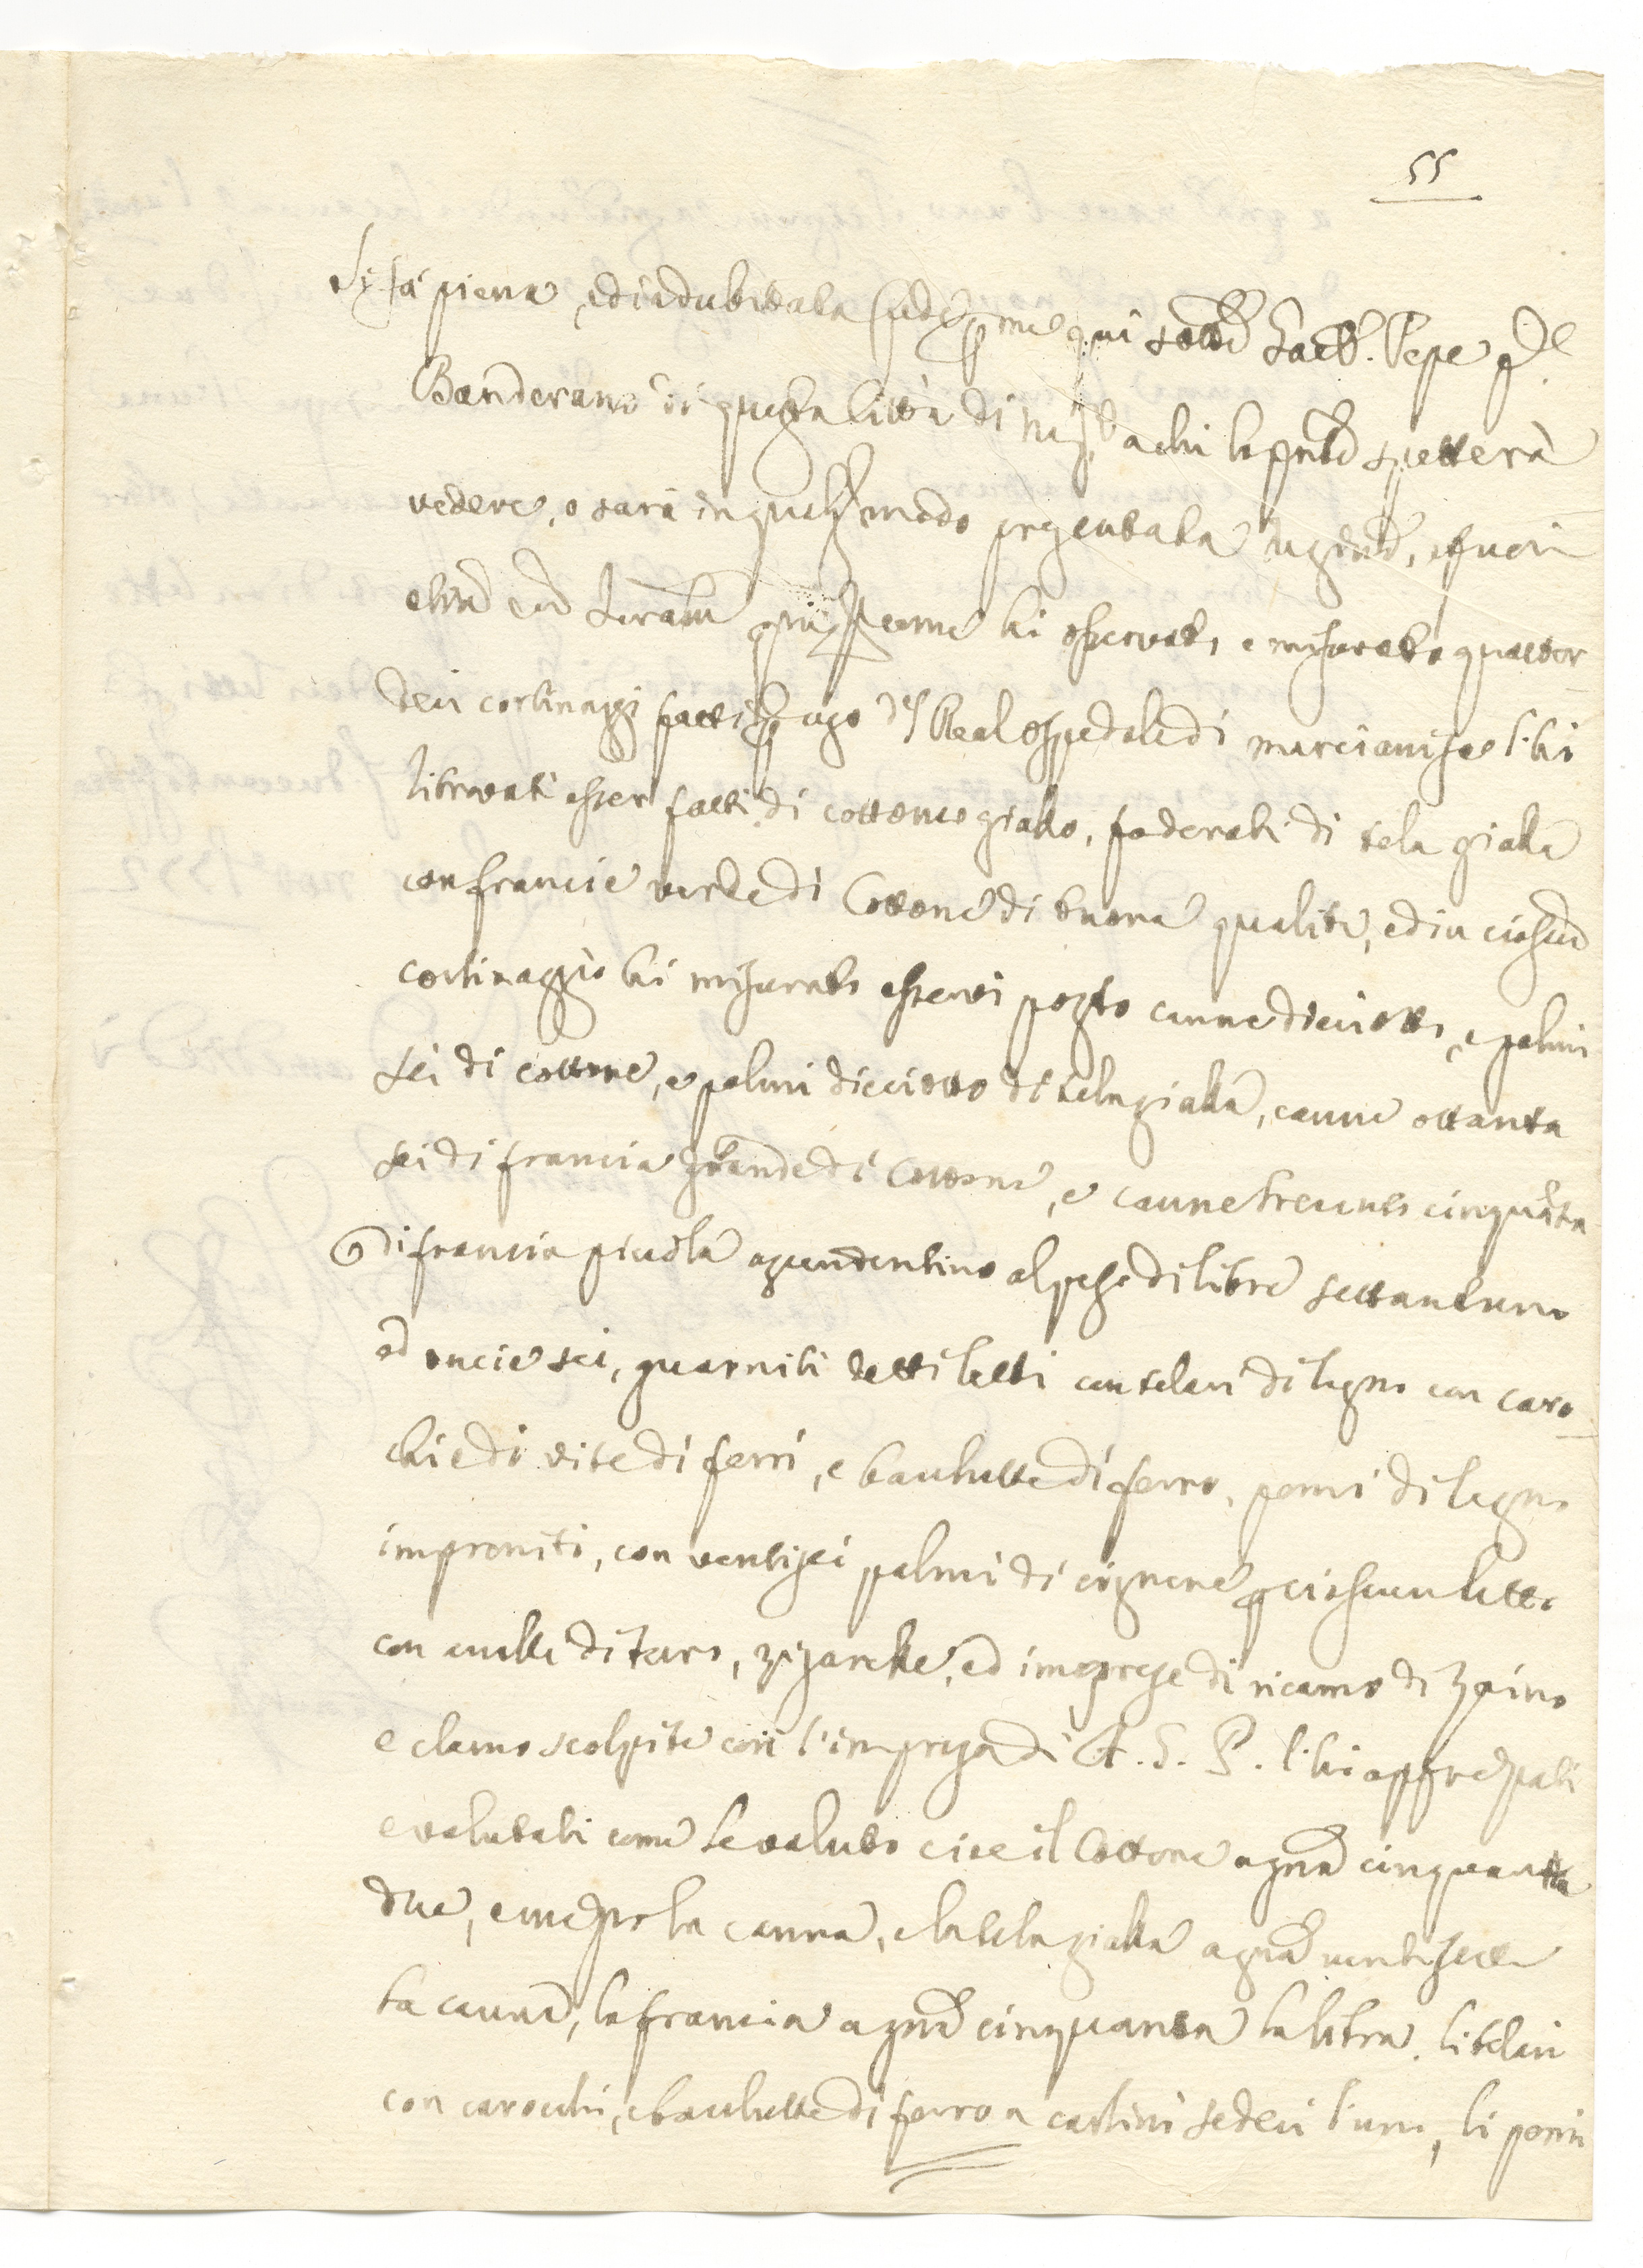 55
Si fa piena, ed indubitata fede per me qui sotto Pepe
Banderaro di questa Città di a chi la pnte spetterà
vedere, o sarà in qualsᵃ modo presentata
etiam cum Juram come hò osservato, e misurato quattor
deci cortinaggi fatti per uso del Real Ospedale di Marcianise l'hò
ritrovati esser fatti di cottone giallo, foderati di tela gialla
con francie verde di Cottone di buona qualità, ed in ciascun
cortinaggio hò misurato esservi posto canne dieciotto, e palmi
sei di cottone, e palmi dieciotto di tela gialla, canne ottanta
sei di francia grande di Cottone, e canne trecento cinquanta
di francia piccola al peso di libre settantuno
ed oncie sei, guarniti detti letti con telari di legno con caro
chie di vite di ferri, e bacchette di ferro, pomi di legno
improniti, con ventisei palmi di cignone per ciascun letto
con anelle di , zigarelle, ed imprese di ricamo di
e scolpite con l'impresa di A. G. P. l'hò apprezzati
e valutati come le valuto cioè il Cottone a grna cinquanta
due, e mezzo la canna, e la tela gialla a grna ventisette
la canna, la francia a grna cinquanta la libra, li telari
con carocchi, e bacchette di ferro a carlini sedeci l'uno, li pomi